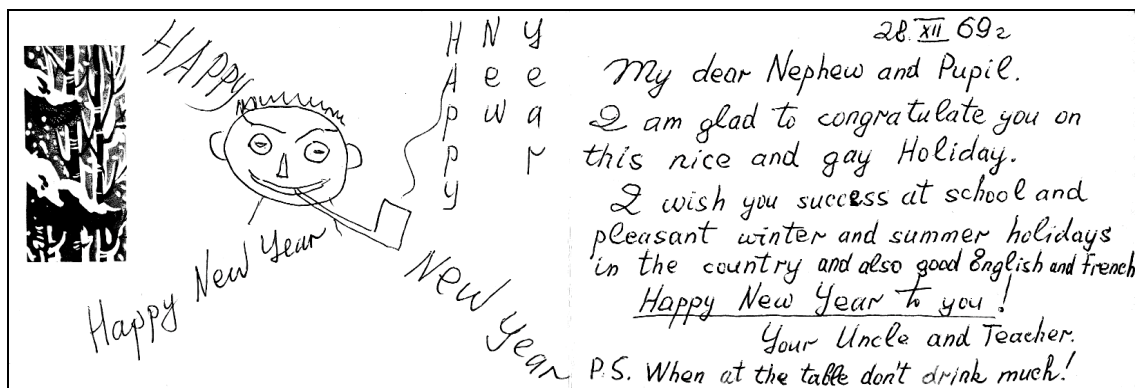 HAppy
New Year
Happy New Year
HAppy
New
Year
28. XII 69г
My dear Nephew and Pupil.
I am glad to congratulate you on
this nice and gay Holiday.
I wish you success at school and
pleasant winter and summer holidays
in the country and also good English and French
Happy New Year to you!
Your Uncle and Teacher.
P.S. When at the table don't drink much!